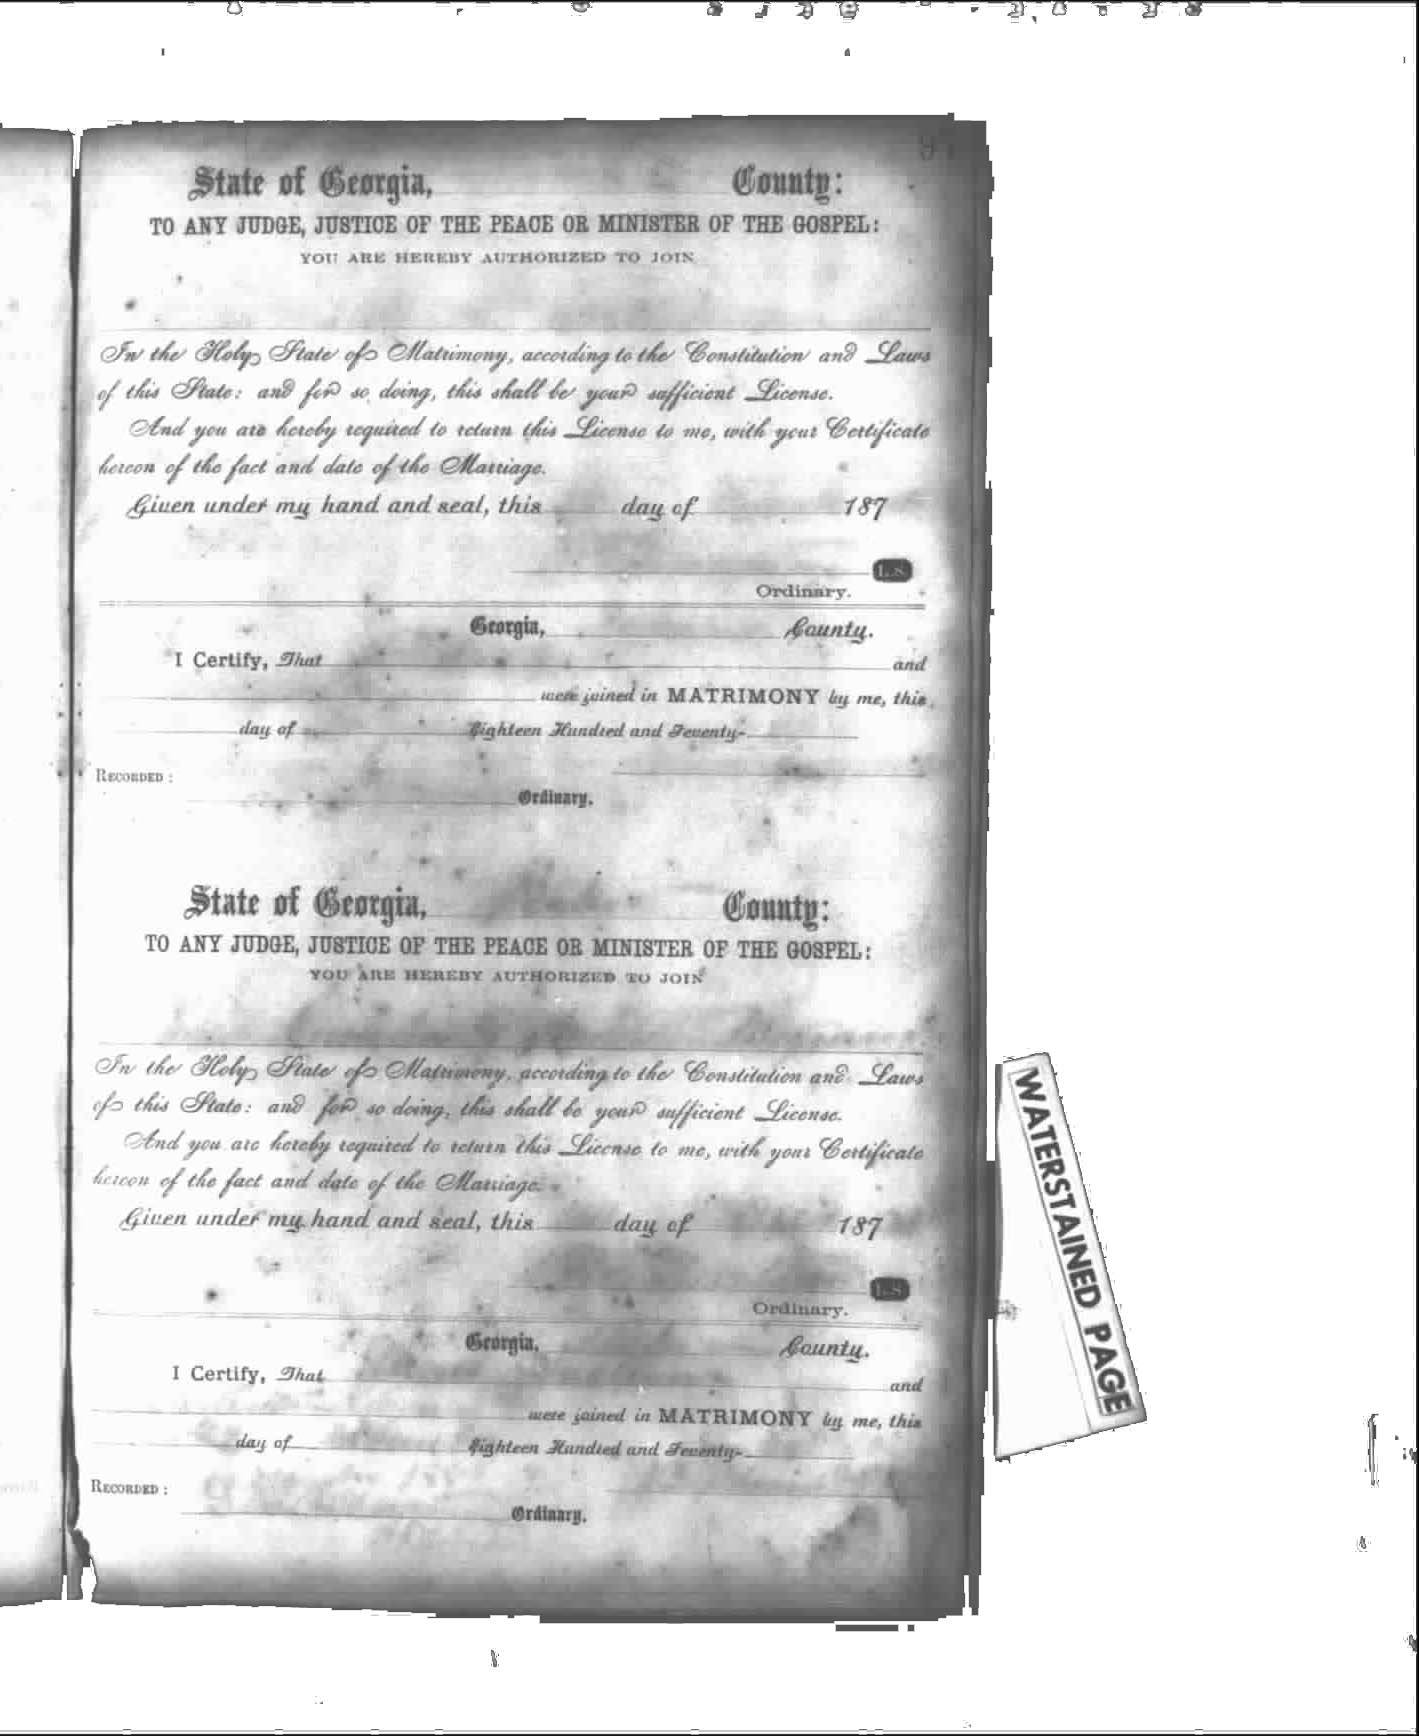 9
State of Georgia, County:
TO ANY JUDGE, JUSTICE OF THE PEACE OR MINISTER OF THE GOSPEL:
YOU ARE HEREBY AUTHORIZED TO JOIN
In the Holy State of Matrimony, according to the Constitution and Laws
of this State: and for so doing, this shall be your sufficient License.
And you are hereby required to return this License to me, with your Certificate
hereon of the fact and date of the Marriage.
Given under my hand and seal, this day of 187
L.S.
Ordinary.
Georgia, County.
I Certify, That and
were joined in MATRIMONY by me, this
day of Eighteen Hundred and Seventy-
RECORDED:
Ordinary.
State of Georgia, County:
TO ANY JUDGE, JUSTICE OF THE PEACE OR MINISTER OF THE GOSPEL:
YOU ARE HEREBY AUTHORIZED TO JOIN
In the Holy State of Matrimony, according to the Constitution and Laws
of this State: and for so doing, this shall be your sufficient License.
And you are hereby required to return this License to me, with your Certificate
hereon of the fact and date of the Marriage.
Given under my hand and seal, this day of 187
L.S.
Ordinary.
Georgia, County.
I Certify, That and
were joined in MATRIMONY by me, this
day of Eighteen Hundred and Seventy-
RECORDED:
Ordinary.
WATERSTAINED PAGE